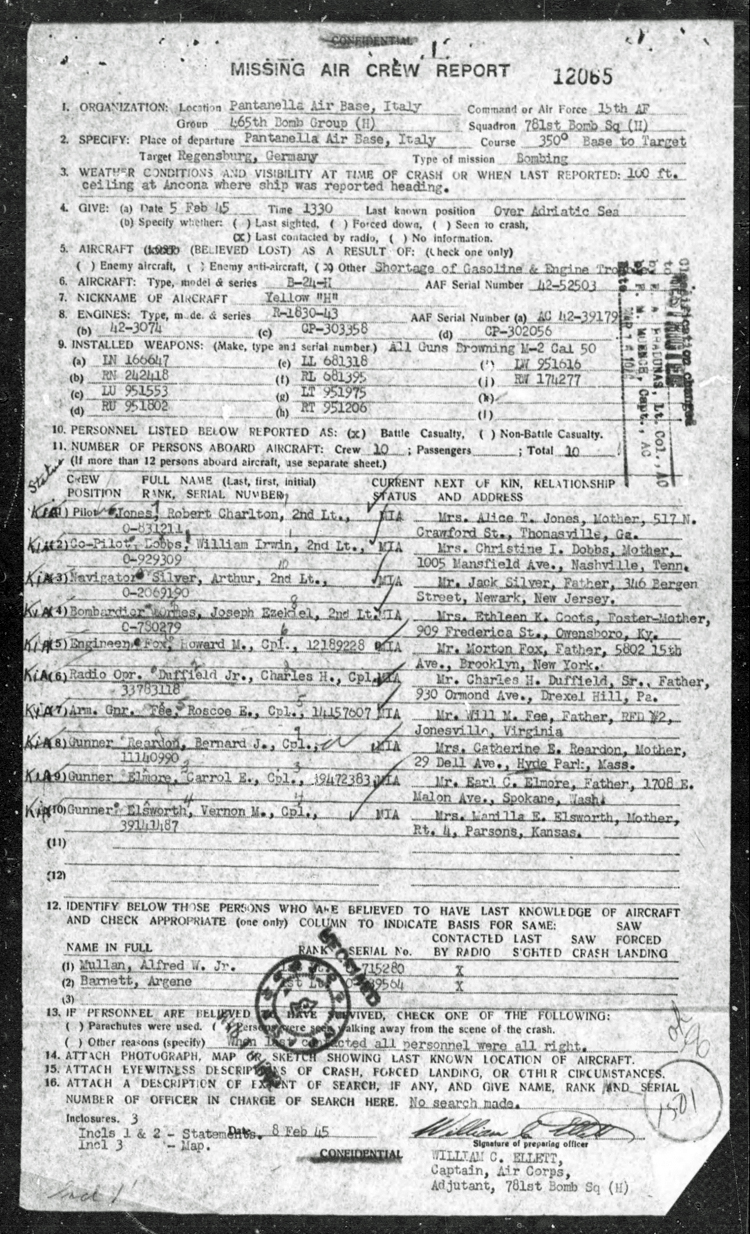 CONFIDENTIAL
MISSING AIR CREW REPORT 12065
1. ORGANIZATION: Location Pantanella Air Base, Italy Command or Air Force 15th AF
Group 465th Bomb Group (H) Squadron 781st Bomb Sq (H)
2. SPECIFY: Place of departure Pantanella Air Base, Italy Course 350° Base to Target
Target Regensburg, Germany Type of mission Bombing
3. WEATHER CONDITIONS AND VISIBILITY AT TIME OF CRASH OR WHEN LAST REPORTED: 100 ft.
ceiling at Ancona where ship was reported heading.
4. GIVE: (a) Date 5 Feb 45 Time 1330 Last known position Over Adriatic Sea
(b) Specify whether: ( ) Last sighted, ( ) Forced down, ( ) Seen to crash,
(X) Last contacted by radio, ( ) No information.
5. AIRCRAFT (LOST) (BELIEVED LOST) AS A RESULT OF: (Check one only)
( ) Enemy aircraft, ( ) Enemy anti-aircraft, (X) Other Shortage of Gasoline & Engine
6. AIRCRAFT: Type, model & series B-24-H AAF Serial Number 42-52503
7. NICKNAME OF AIRCRAFT Yellow "H"
8. ENGINES: Type, model & series R-1830-43 AAF Serial Number (a) AC 42-39179
(b) 42-3074 (c) CP-303358 (d) CP-302056
9. INSTALLED WEAPONS: (Make, type and serial number) All Guns Browning M-2 Cal 50
(a) LN 166647 (e) LL 681318 (i) LW 951616
(b) RN 242418 (f) RL 681395 (j) RW 174277
(c) LU 951553 (g) LT 951975 (k)
(d) RU 951802 (h) RT 951206 (l)
10. PERSONNEL LISTED BELOW REPORTED AS: (X) Battle Casualty, ( ) Non-Battle Casualty.
11. NUMBER OF PERSONS ABOARD AIRCRAFT: Crew 10; Passengers ; Total 10
(If more than 12 persons aboard aircraft, use separate sheet.)
Status CREW FULL NAME (Last, first, initial) CURRENT NEXT OF KIN, RELATIONSHIP
POSITION RANK, SERIAL NUMBER STATUS AND ADDRESS
KIA (1) Pilot Jones, Robert Charlton, 2nd Lt., MIA Mrs. Alice T. Jones, Mother, 517 N.
O-831211 Crawford St., Thomasville, Ga.
KIA (2) Co-Pilot, Dobbs, William Irwin, 2nd Lt., MIA Mrs. Christine I. Dobbs, Mother,
O-929309 1005 Mansfield Ave., Nashville, Tenn.
KIA (3) Navigator Silver, Arthur, 2nd Lt., MIA Mr. Jack Silver, Father, 346 Bergen
O-2069190 Street, Newark, New Jersey.
KIA (4) Bombardier Joseph Ezekiel, 2nd Lt. MIA Mrs. Ethleen K. Coots, Foster-Mother,
O-780279 909 Frederica St., Owensboro, Ky.
KIA (5) Engineer Fox, Howard M., Cpl., 12189228 MIA Mr. Morton Fox, Father, 5802 15th
Ave., Brooklyn, New York.
KIA (6) Radio Opr. Duffield Jr., Charles H., Cpl. MIA Mr. Charles H. Duffield, Sr., Father,
33783118 930 Ormond Ave., Drexel Hill, Pa.
KIA (7) Arm. Gnr. Fee, Roscoe E., Cpl., 14157607 MIA Mr. Will M. Fee, Father, RFD #2,
Jonesville, Virginia
KIA (8) Gunner Reardon, Bernard J., Cpl., MIA Mrs. Catherine E. Reardon, Mother,
11140990 29 Dell Ave., Hyde Park, Mass.
KIA (9) Gunner Elmore, Carrol E., Cpl., 19472383, MIA Mr. Earl C. Elmore, Father, 1708 E.
Malon Ave., Spokane, Wash.
KIA (10) Gunner Elsworth, Vernon M., Cpl., MIA Mrs. Manilla E. Elsworth, Mother,
39141487 Rt. 4, Parsons, Kansas.
(11)
(12)
12. IDENTIFY BELOW THOSE PERSONS WHO ARE BELIEVED TO HAVE LAST KNOWLEDGE OF AIRCRAFT
AND CHECK APPROPRIATE (one only) COLUMN TO INDICATE BASIS FOR SAME: SAW
CONTACTED LAST SAW FORCED
NAME IN FULL RANK SERIAL No. BY RADIO SIGHTED CRASH LANDING
(1) Mullan, Alfred W. Jr. 715280 X
(2) Barnett, Argene 1st Lt X
(3)
13. IF PERSONNEL ARE BELIEVED TO HAVE SURVIVED, CHECK ONE OF THE FOLLOWING:
( ) Parachutes were used. ( ) Persons were seen walking away from the scene of the crash.
( ) Other reasons (specify) When last contacted all personnel were all right.
14. ATTACH PHOTOGRAPH, MAP OR SKETCH SHOWING LAST KNOWN LOCATION OF AIRCRAFT.
15. ATTACH EYEWITNESS DESCRIPTIONS OF CRASH, FORCED LANDING, OR OTHER CIRCUMSTANCES.
16. ATTACH A DESCRIPTION OF EXTENT OF SEARCH, IF ANY, AND GIVE NAME, RANK AND SERIAL
NUMBER OF OFFICER IN CHARGE OF SEARCH HERE. No search made.
1501
Inclosures. 3
Incls 1 & 2 - Statements. Date 8 Feb 45
Incl 3 - Map.
Signature of preparing officer
CONFIDENTIAL
WILLIAM C. ELLETT,
Captain, Air Corps,
Adjutant, 781st Bomb Sq (H)